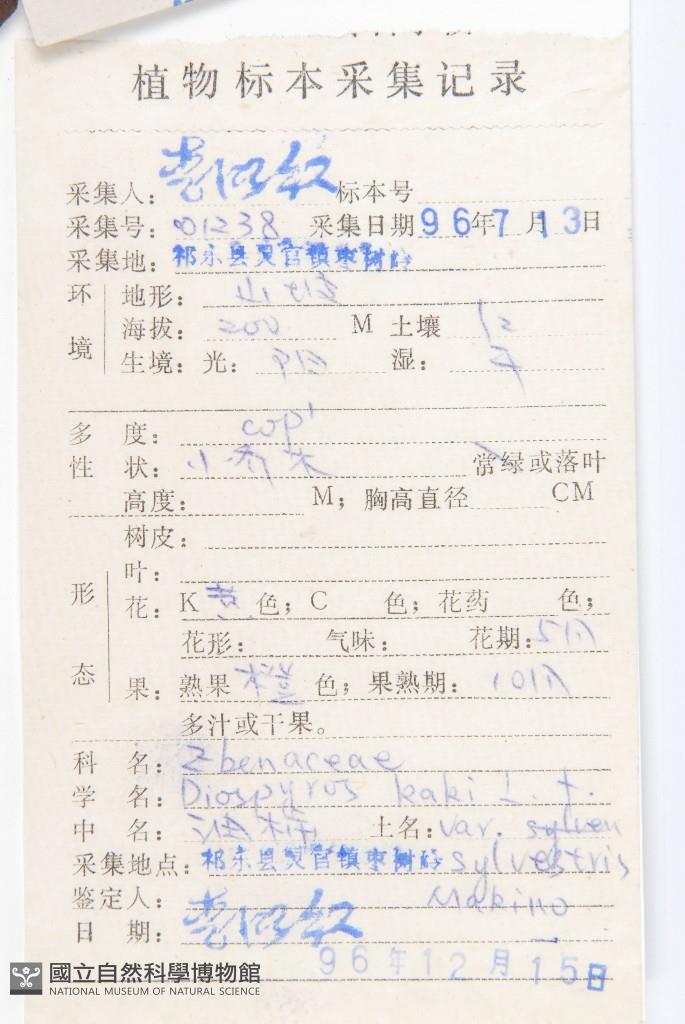 植物标本采集记录
采集人： 标本号
采集号：001238 采集日期96年7月13日
采集地：祁东县灵官镇枣树岭
环境
地形：山坡
海拔：200 M 土壤 红
生境：光：阳 湿：干
多度：cop¹
性状：小乔木 常绿或落叶
高度： M；胸高直径 CM
形态
树皮：
叶：
花：K黄色；C 色；花药 色；
花形： 气味： 花期：5月
果：熟果橙色；果熟期：10月
多汁或干果。
科名：Ebenaceae
学名：Diospyros kaki L. f.
中名：油柿 土名：var. sylven
采集地点：祁东县灵官镇枣树岭 sylvestris
鉴定人： Makino
日期：
96年12月15日
國立自然科學博物館
NATIONAL MUSEUM OF NATURAL SCIENCE